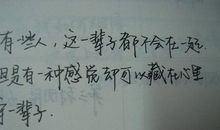 有些人，这一辈子都不会在一起.
但是有一种感觉却可以藏在心里
守一辈子.